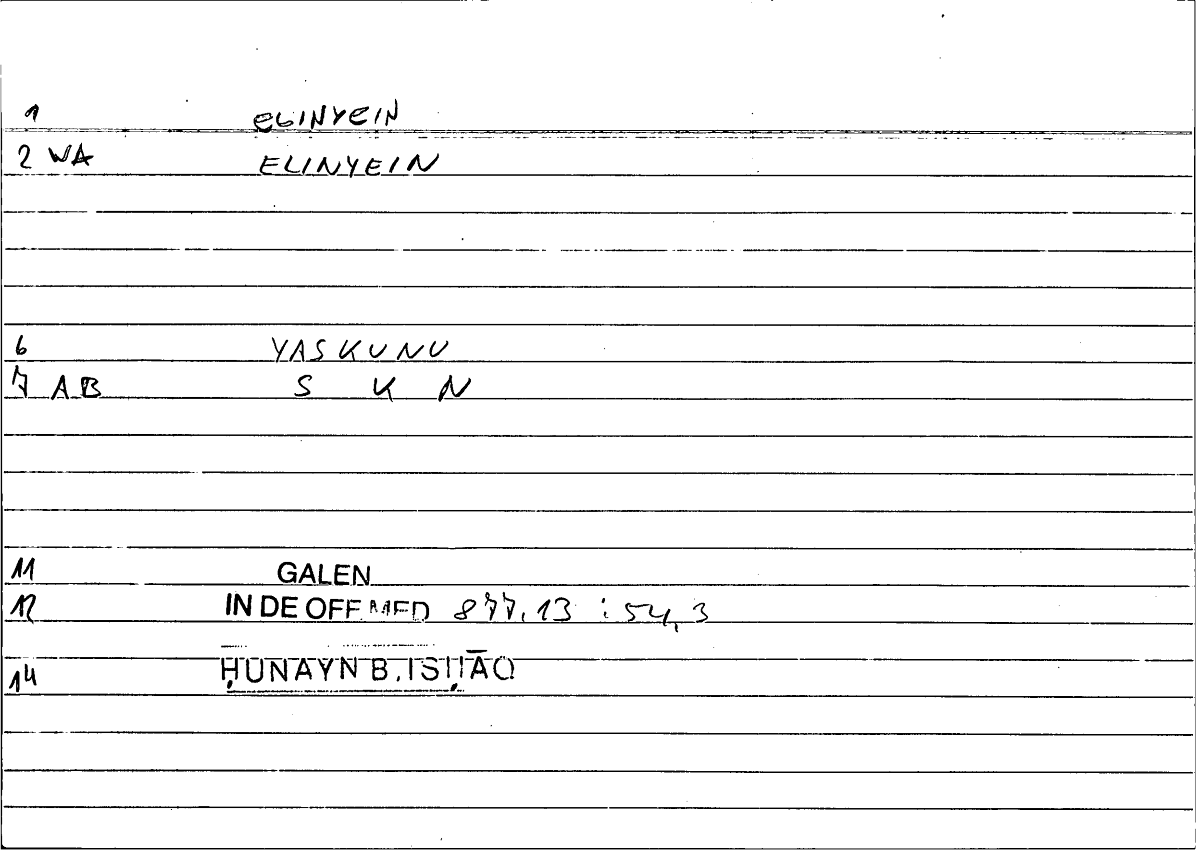 1 ELINYEIN
2 WA ELINYEIN
6 YASKUNU
7 AB S K N
11 GALEN
12 IN DE OFF MED 877,13 : 54,3
14 ḤUNAYN B. ISḤĀQ